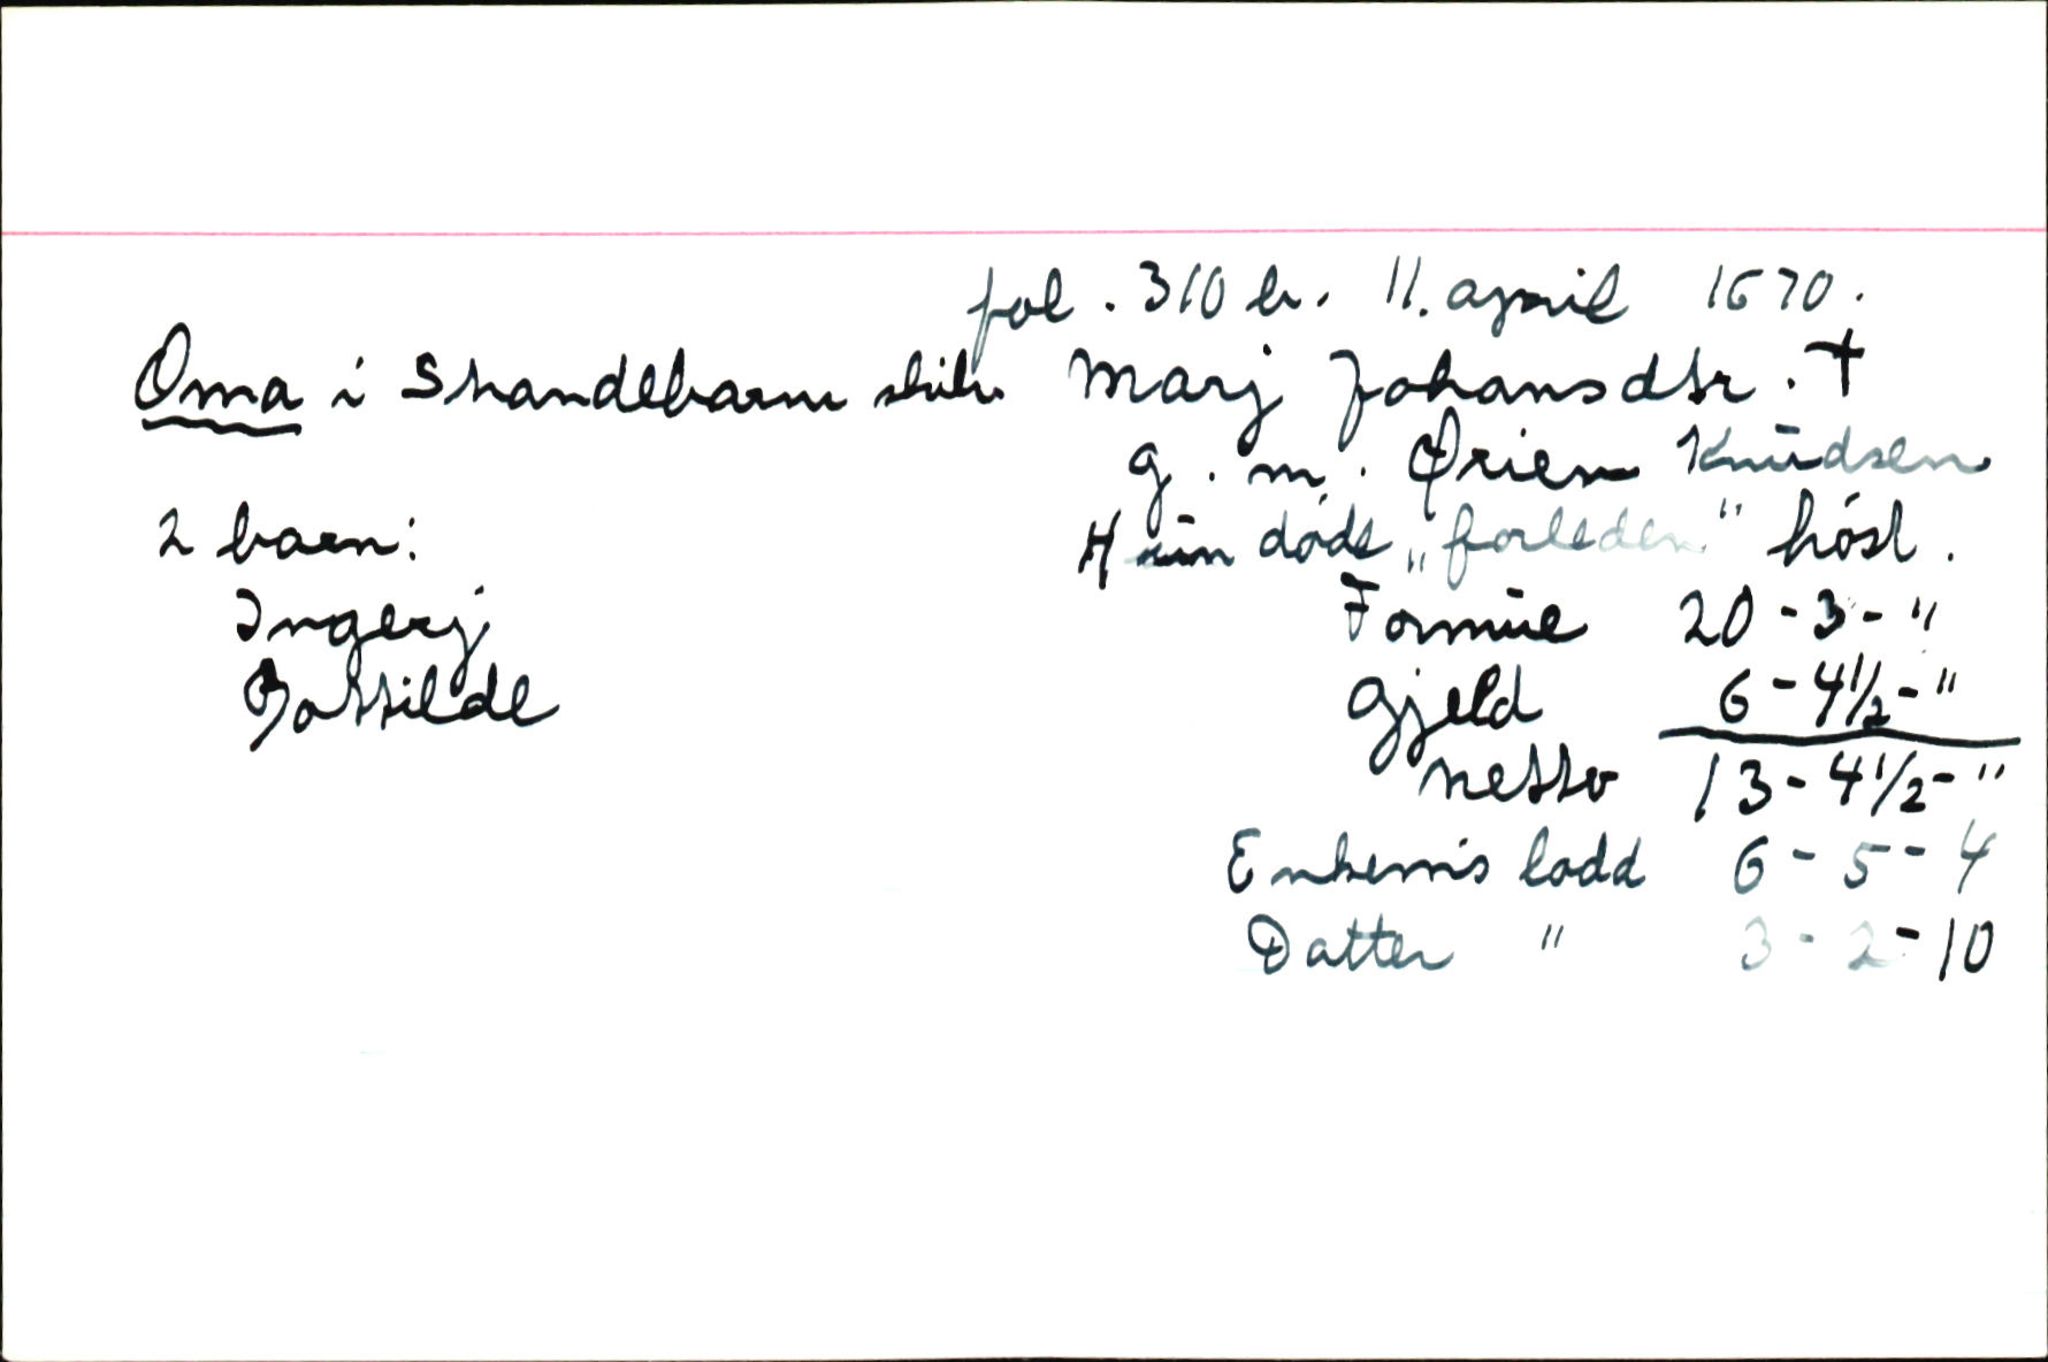 fol. 310 b. 11. april 1670.
Oma i Strandebarm skibr. Marj Johansdtr. †
g. m. Ørien Knudsen
2 barn:
Hun døde „forleden" høst.
Ingerj
Formue 20 - 3 - "
Botilde
Gjeld 6 - 4½ - "
netto 13 - 4½ - "
Enkem's lodd 6 - 5 - 4
Datter " 3 - 2 - 10